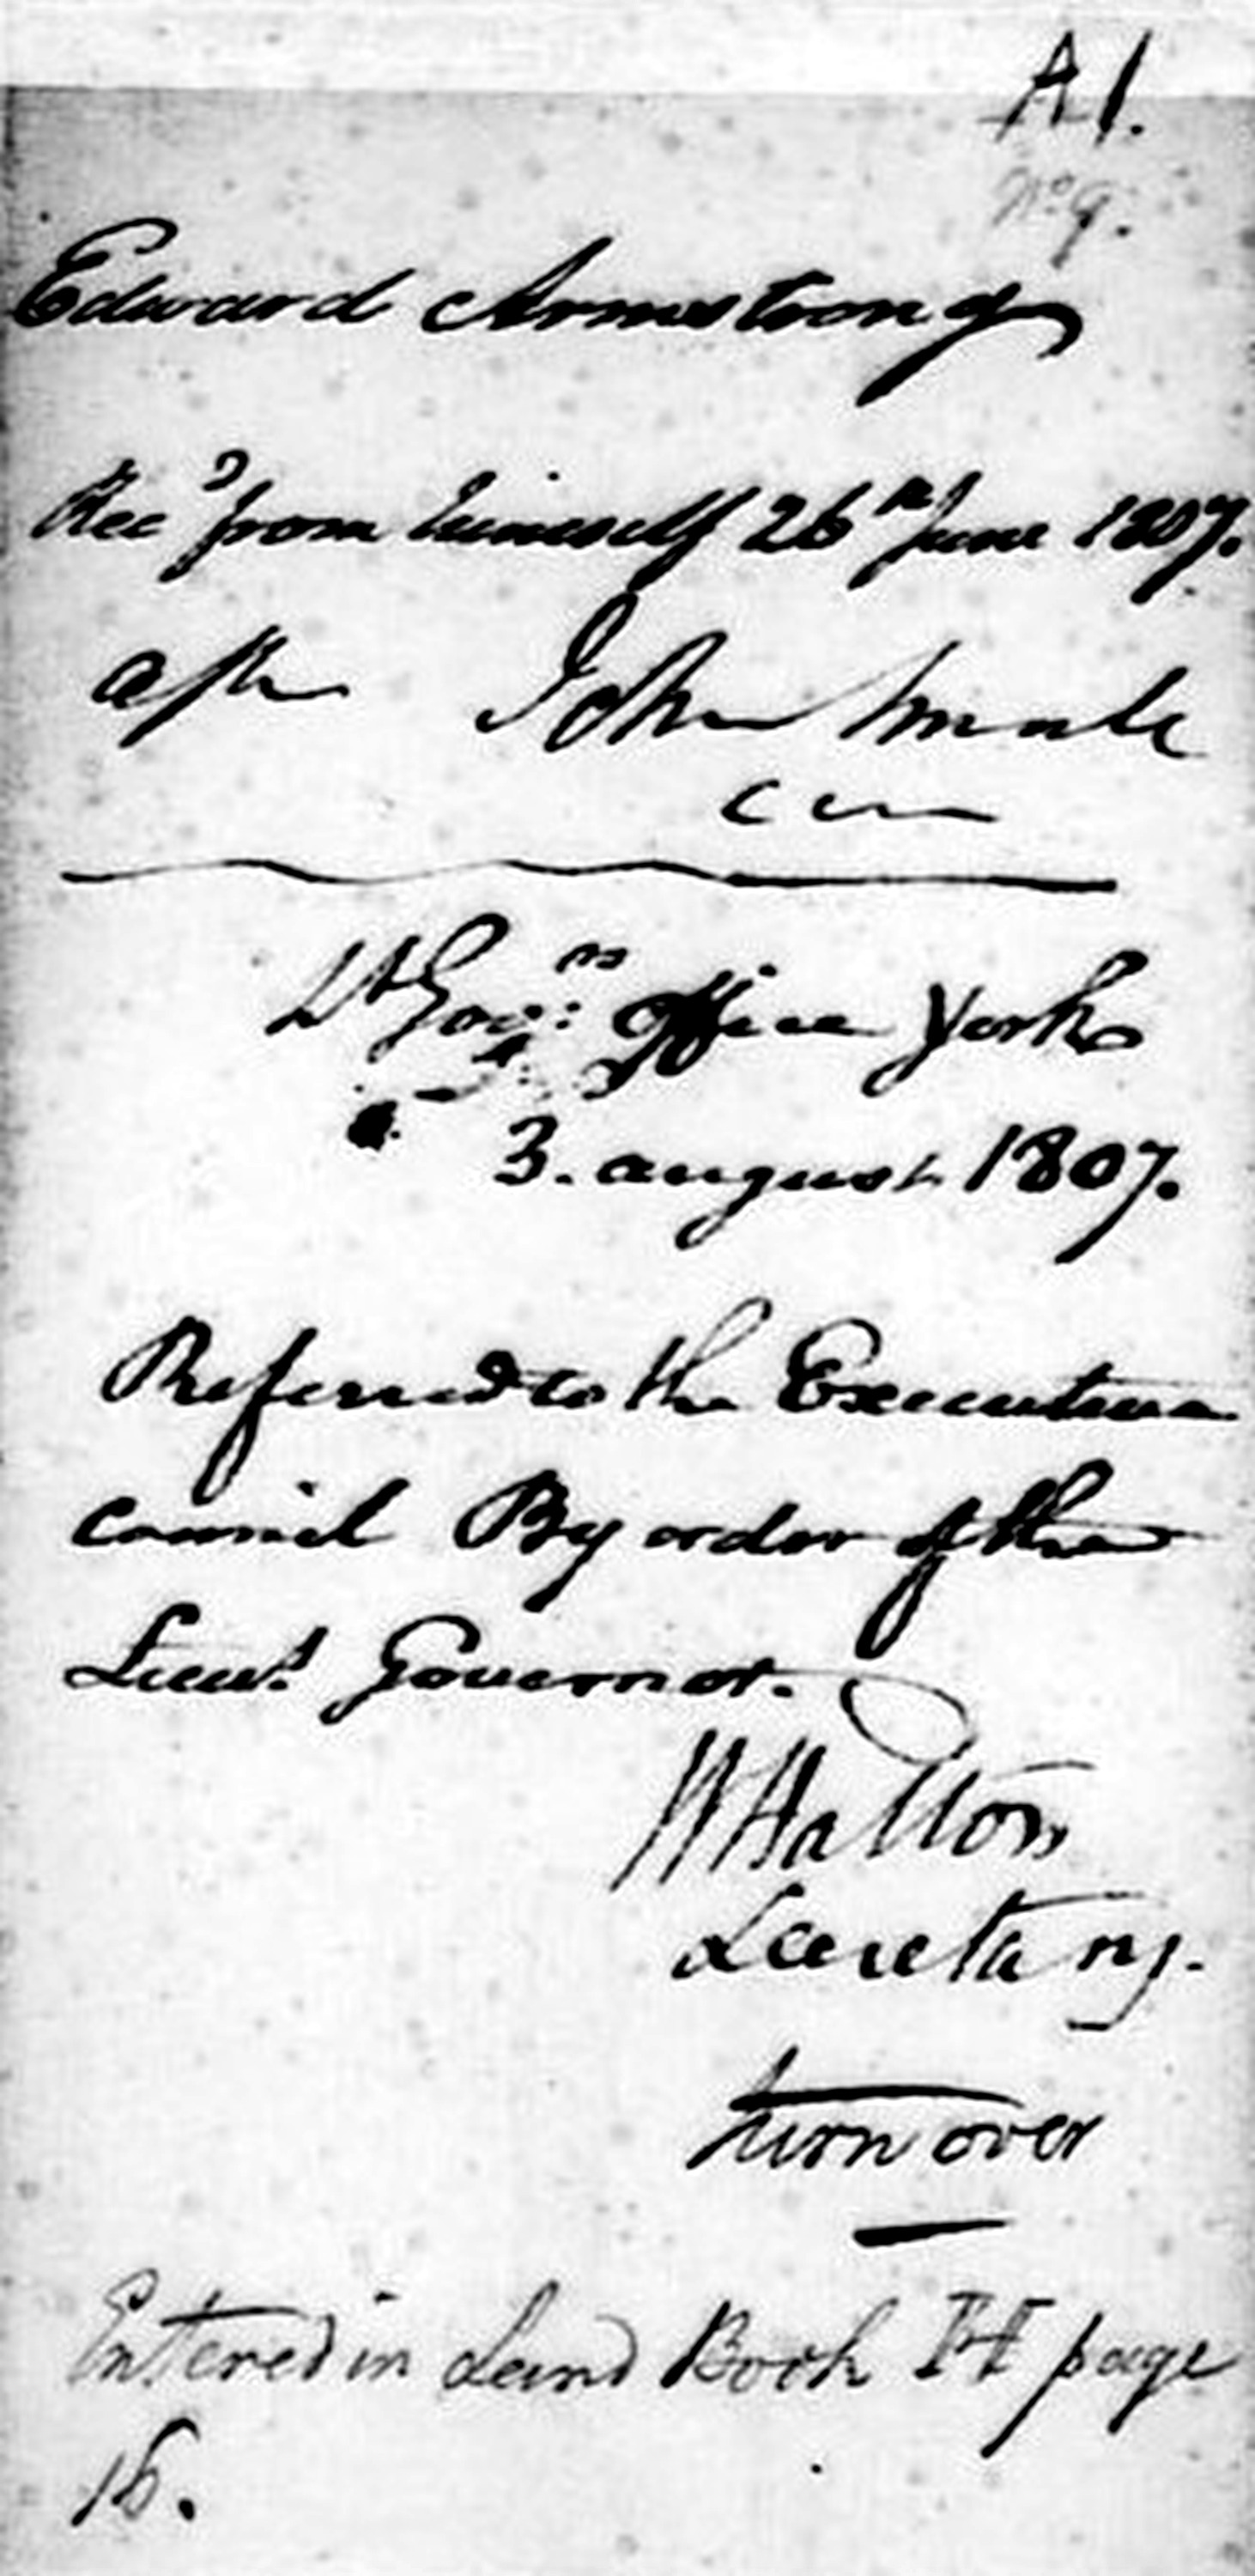 A1.
No 9.
Edward Armstrong
Recd from himself 26th June 1807.
John Small
Lt Govrs office York
3. august 1807.
Referred to the Executive
council By order of the
Lieut. Governor.
W Halton
Secretary.
turn over
Entered in Land Book H page
16.